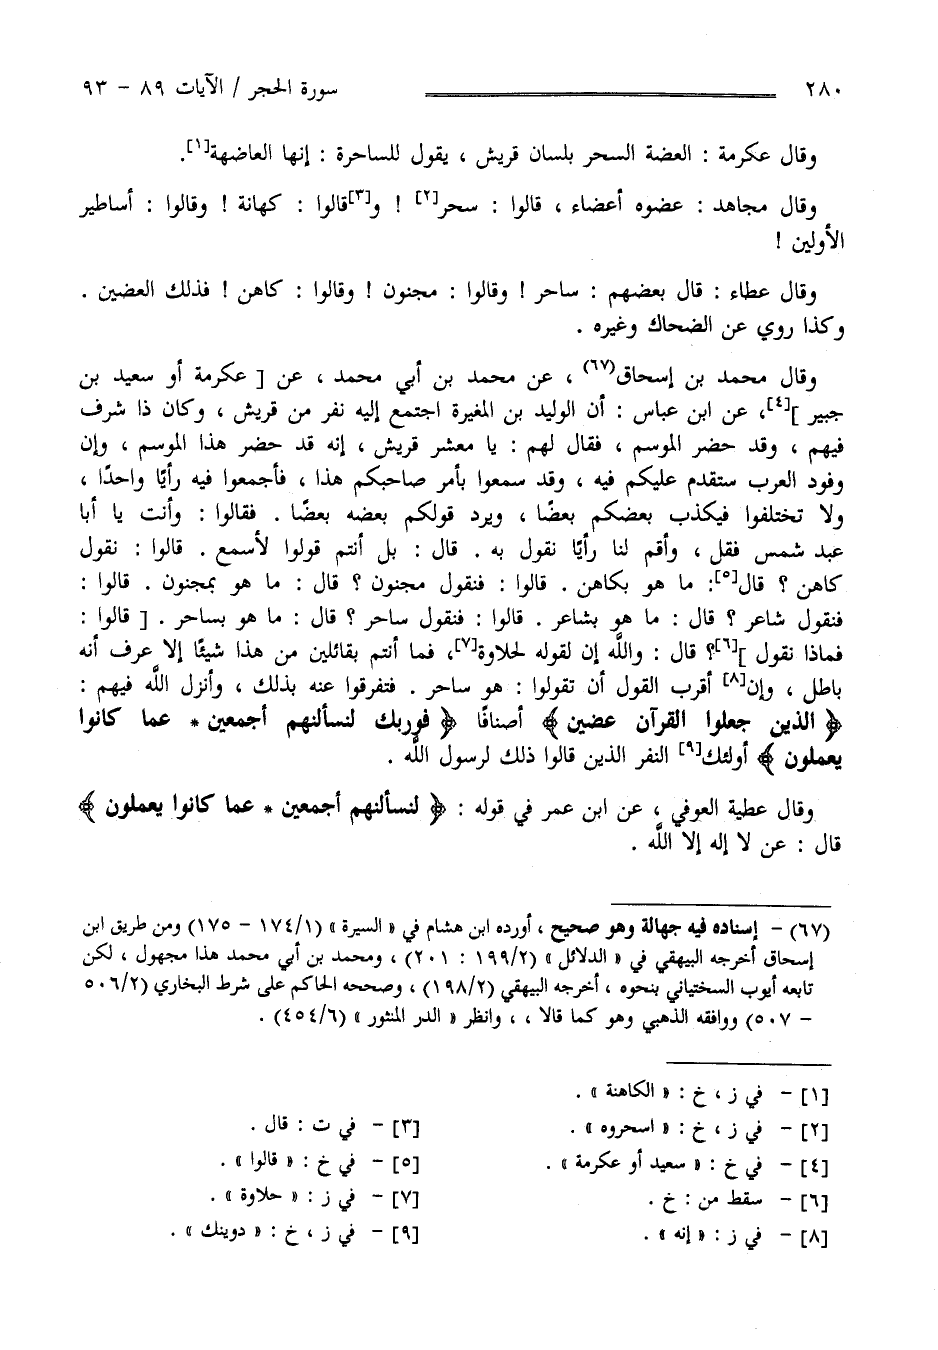 ٢٨٠ سورة الحجر / الآيات ٨٩ - ٩٣
وقال عكرمة : العضة السحر بلسان قريش ، يقول للساحرة : إنها العاضهة[١].
وقال مجاهد : عضوه أعضاء ، قالوا : سحر[٢] ! و[٣]قالوا : كهانة ! وقالوا : أساطير
الأولين !
وقال عطاء : قال بعضهم : ساحر ! وقالوا : مجنون ! وقالوا : كاهن ! فذلك العضين .
وكذا روي عن الضحاك وغيره .
وقال محمد بن إسحاق(٦٧) ، عن محمد بن أبي محمد ، عن [ عكرمة أو سعيد بن
جبير ][٤]، عن ابن عباس : أن الوليد بن المغيرة اجتمع إليه نفر من قريش ، وكان ذا شرف
فيهم ، وقد حضر الموسم ، فقال لهم : يا معشر قريش ، إنه قد حضر هذا الموسم ، وإن
وفود العرب ستقدم عليكم فيه ، وقد سمعوا بأمر صاحبكم هذا ، فأجمعوا فيه رأيًا واحدًا ،
ولا تختلفوا فيكذب بعضكم بعضًا ، ويرد قولكم بعضه بعضًا . فقالوا : وأنت يا أبا
عبد شمس فقل ، وأقم لنا رأيًا نقول به . قال : بل أنتم قولوا لأسمع . قالوا : نقول
كاهن ؟ قال[٥]: ما هو بكاهن . قالوا : فنقول مجنون ؟ قال : ما هو بمجنون . قالوا :
فنقول شاعر ؟ قال : ما هو بشاعر . قالوا : فنقول ساحر ؟ قال : ما هو بساحر . [ قالوا :
فماذا نقول ][٦]؟ قال : واللَّه إن لقوله لحلاوة[٧]، فما أنتم بقائلين من هذا شيئًا إلا عرف أنه
باطل ، وإن[٨] أقرب القول أن تقولوا : هو ساحر . فتفرقوا عنه بذلك ، وأنزل اللَّه فيهم :
﴿ الذين جعلوا القرآن عضين ﴾ أصنافًا ﴿ فوربك لنسألنهم أجمعين * عما كانوا
يعملون ﴾ أولئك[٩] النفر الذين قالوا ذلك لرسول اللَّه .
وقال عطية العوفي ، عن ابن عمر في قوله : ﴿ لنسألنهم أجمعين * عما كانوا يعملون ﴾
قال : عن لا إله إلا اللَّه .
(٦٧) - إسناده فيه جهالة وهو صحيح ، أورده ابن هشام في « السيرة » (١٧٤/١ - ١٧٥) ومن طريق ابن
إسحاق أخرجه البيهقي في « الدلائل » (١٩٩/٢ : ٢٠١) ، ومحمد بن أبي محمد هذا مجهول ، لكن
تابعه أيوب السختياني بنحوه ، أخرجه البيهقي (١٩٨/٢) ، وصححه الحاكم على شرط البخاري (٥٠٦/٢
- ٥٠٧) ووافقه الذهبي وهو كما قالا ، ، وانظر « الدر المنثور » (٤٥٤/٦) .
[١] - في ز ، خ : « الكاهنة » .
[٢] - في ز ، خ : « اسحروه » . [٣] - في ت : قال .
[٤] - في خ : « سعيد أو عكرمة » . [٥] - في خ : « قالوا » .
[٦] - سقط من : خ . [٧] - في ز : « حلاوة » .
[٨] - في ز : « إنه » . [٩] - في ز ، خ : « دوينك » .